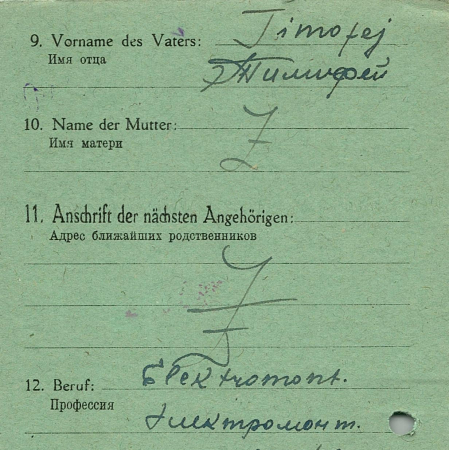 9. Vorname des Vaters: Timofej
Имя отца Тимофей
10. Name der Mutter:
Имя матери
11. Anschrift der nächsten Angehörigen:
Адрес ближайших родственников
12. Beruf: Elektromont.
Профессия Электромонт.